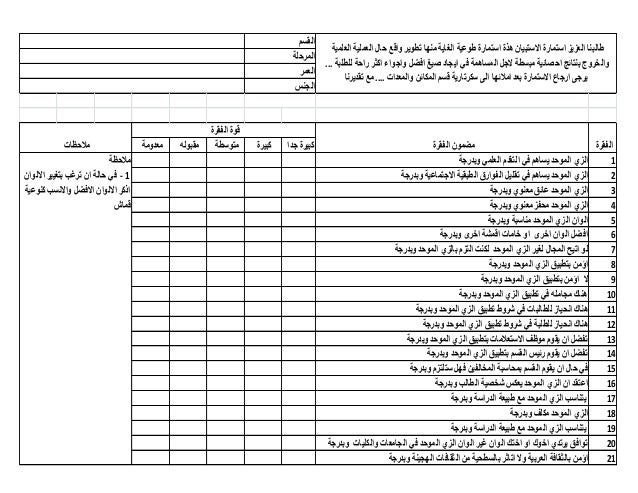 طالبنا العزيز استمارة الاستبيان هذة استمارة طوعية الغاية منها تطوير واقع حال العملية العلمية
والخروج بنتائج احصائية مبسطة لاجل المساهمة في ايجاد صيغ افضل واجواء اكثر راحة للطلبة ...
يرجى ارجاع الاستمارة بعد املائها الى سكرتارية قسم المكائن والمعدات .... مع تقديرنا
القسم
المرحلة
العمر
الجنس
قوة الفقرة
الفقرة مضمون الفقرة كبيرة جدا كبيرة متوسطة مقبوله معدومة ملاحظات
1 الزي الموحد يساهم في التقدم العلمي وبدرجة
2 الزي الموحد يساهم في تقليل الفوارق الطبقية الاجتماعية وبدرجة
3 الزي الموحد عائق معنوي وبدرجة
4 الزي الموحد محفز معنوي وبدرجة
5 الوان الزي الموحد مناسبة وبدرجة
6 افضل الوان اخرى او خامات اقمشة اخرى وبدرجة
7 لو اتيح المجال لغير الزي الموحد لكنت التزم بالزي الموحد وبدرجة
8 اؤمن بتطبيق الزي الموحد وبدرجة
9 لا اؤمن بتطبيق الزي الموحد وبدرجة
10 هناك مجامله في تطبيق الزي الموحد وبدرجة
11 هناك انحياز للطالبات في شروط تطبيق الزي الموحد وبدرجة
12 هناك انحياز للطلبة في شروط تطبيق الزي الموحد وبدرجة
13 تفضل ان يقوم موظف الاستعلامات بتطبيق الزي الموحد وبدرجة
14 تفضل ان يقوم رئيس القسم بتطبيق الزي الموحد وبدرجة
15 في حال ان يقوم القسم بمحاسبة المخالفين فهل ستلتزم وبدرجة
16 اعتقد ان الزي الموحد يعكس شخصية الطالب وبدرجة
17 يتناسب الزي الموحد مع طبيعة الدراسة وبدرجة
18 الزي الموحد مكلف وبدرجة
19 يتناسب الزي الموحد مع طبيعة الدراسة وبدرجة
20 توافق يرتدي اخوك او اختك الوان غير الوان الزي الموحد في الجامعات والكليات وبدرجة
21 اؤمن بالثقافة العربية ولا اتاثر بالسطحية من الثقافات الهجينة وبدرجة
ملاحظة
1 - في حالة ان ترغب بتغيير الالوان
اذكر الالوان الافضل والانسب كنوعية
قماش